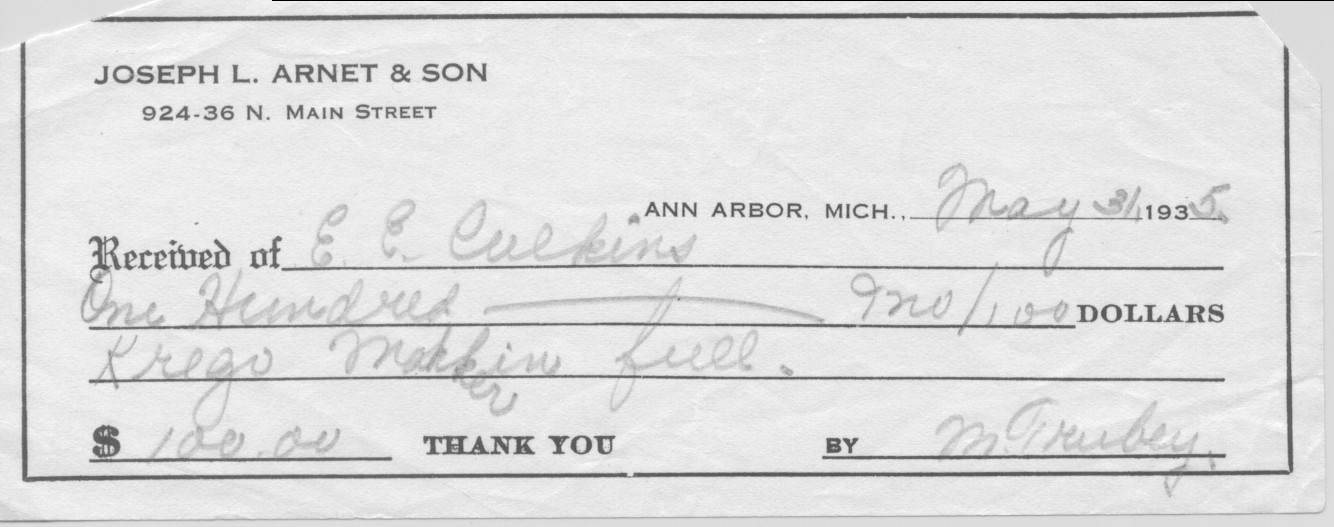 JOSEPH L. ARNET & SON
924-36 N. MAIN STREET
ANN ARBOR, MICH., May 31, 1935.
Received of E. E. Calkins
One Hundred — no/100 DOLLARS
Krego Marker in full.
$ 100.00 THANK YOU BY M. Trubey.